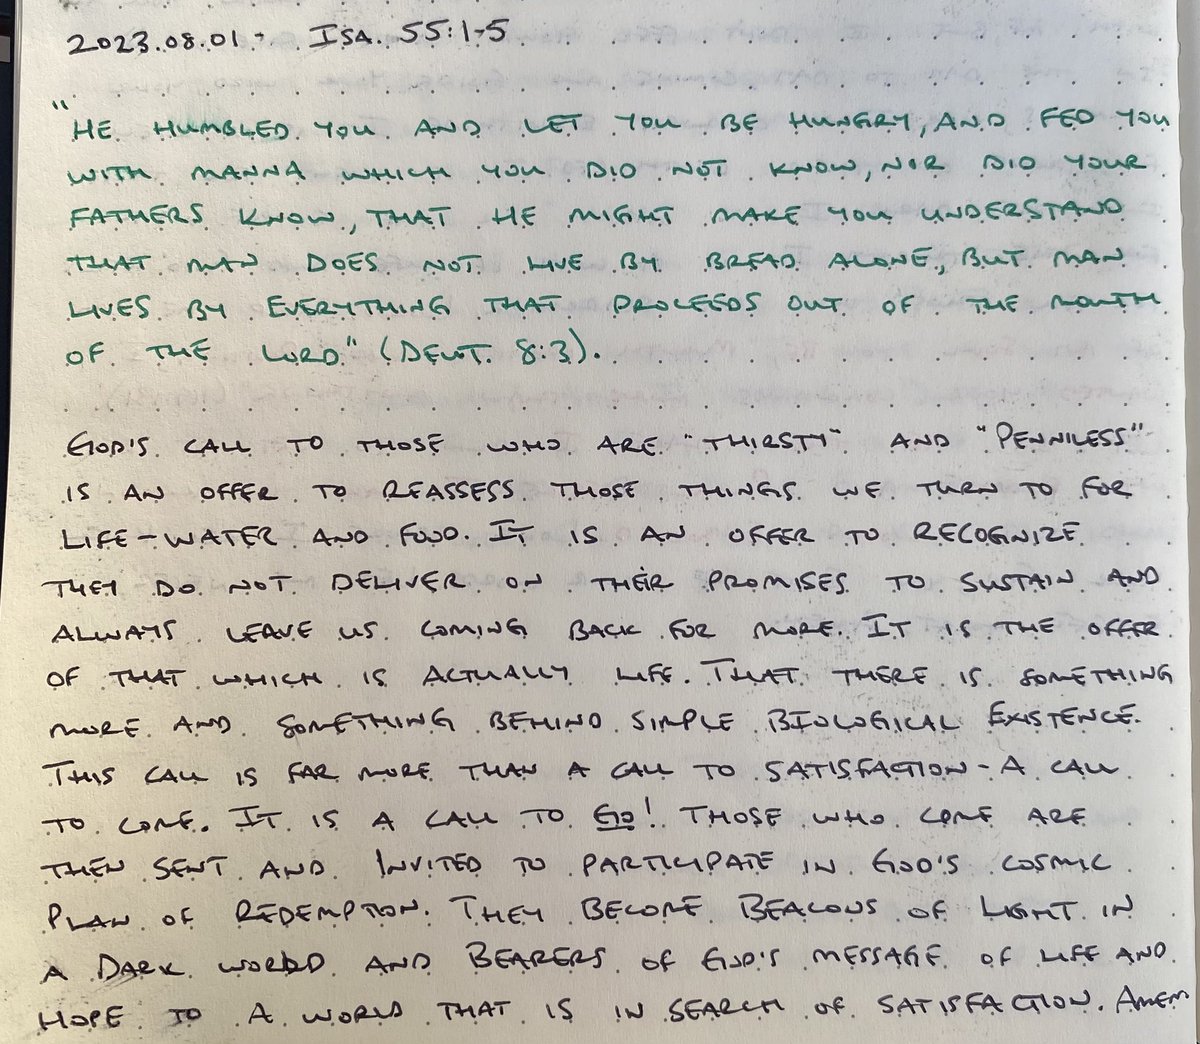 2023.08.01 - ISA. 55:1-5
"HE HUMBLED YOU AND LET YOU BE HUNGRY, AND FED YOU
WITH MANNA WHICH YOU DID NOT KNOW, NOR DID YOUR
FATHERS KNOW, THAT HE MIGHT MAKE YOU UNDERSTAND
THAT MAN DOES NOT LIVE BY BREAD ALONE, BUT MAN
LIVES BY EVERYTHING THAT PROCEEDS OUT OF THE MOUTH
OF THE LORD" (DEUT. 8:3).
GOD'S CALL TO THOSE WHO ARE "THIRSTY" AND "PENNILESS"
IS AN OFFER TO REASSESS THOSE THINGS WE TURN TO FOR
LIFE - WATER AND FOOD. IT IS AN OFFER TO RECOGNIZE
THEY DO NOT DELIVER ON THEIR PROMISES TO SUSTAIN AND
ALWAYS LEAVE US COMING BACK FOR MORE. IT IS THE OFFER
OF THAT WHICH IS ACTUALLY LIFE. THAT THERE IS SOMETHING
MORE AND SOMETHING BEHIND SIMPLE BIOLOGICAL EXISTENCE.
THIS CALL IS FAR MORE THAN A CALL TO SATISFACTION - A CALL
TO COME. IT IS A CALL TO GO! THOSE WHO COME ARE
THEN SENT AND INVITED TO PARTICIPATE IN GOD'S COSMIC
PLAN OF REDEMPTION. THEY BECOME BEACONS OF LIGHT IN
A DARK WORLD AND BEARERS OF GOD'S MESSAGE OF LIFE AND
HOPE TO A WORLD THAT IS IN SEARCH OF SATISFACTION. AMEN